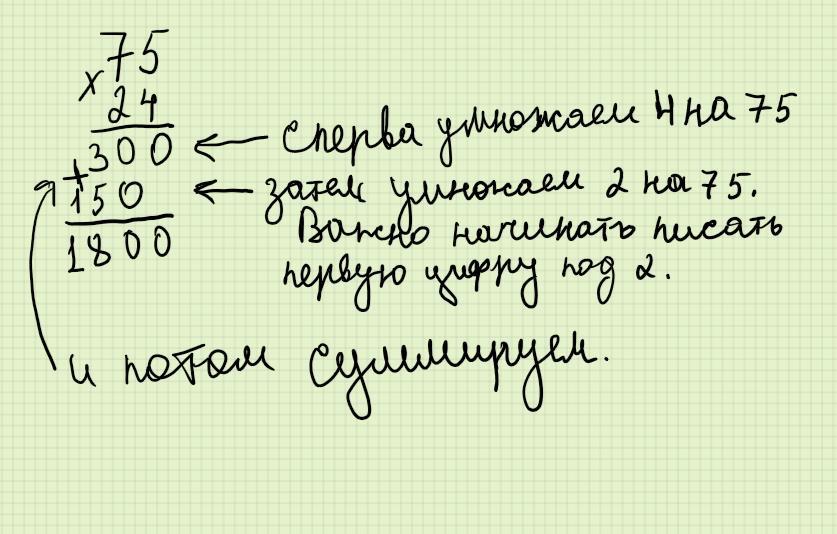 75
x
24
300 ← сперва умножаем 4 на 75
+
150 ← затем умножаем 2 на 75.
Важно начинать писать
первую цифру под 2.
1800
и потом суммируем.